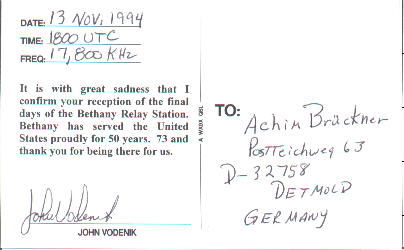 DATE: 13 NOV, 1994
TIME: 1800 UTC
FREQ: 17,800 KHz
It is with great sadness that I
confirm your reception of the final
days of the Bethany Relay Station.
Bethany has served the United
States proudly for 50 years. 73 and
thank you for being there for us.
John Vodenik
JOHN VODENIK
A W8QBX QSL
TO: Achim Brückner
Postteichweg 63
D-32758
DETMOLD
GERMANY